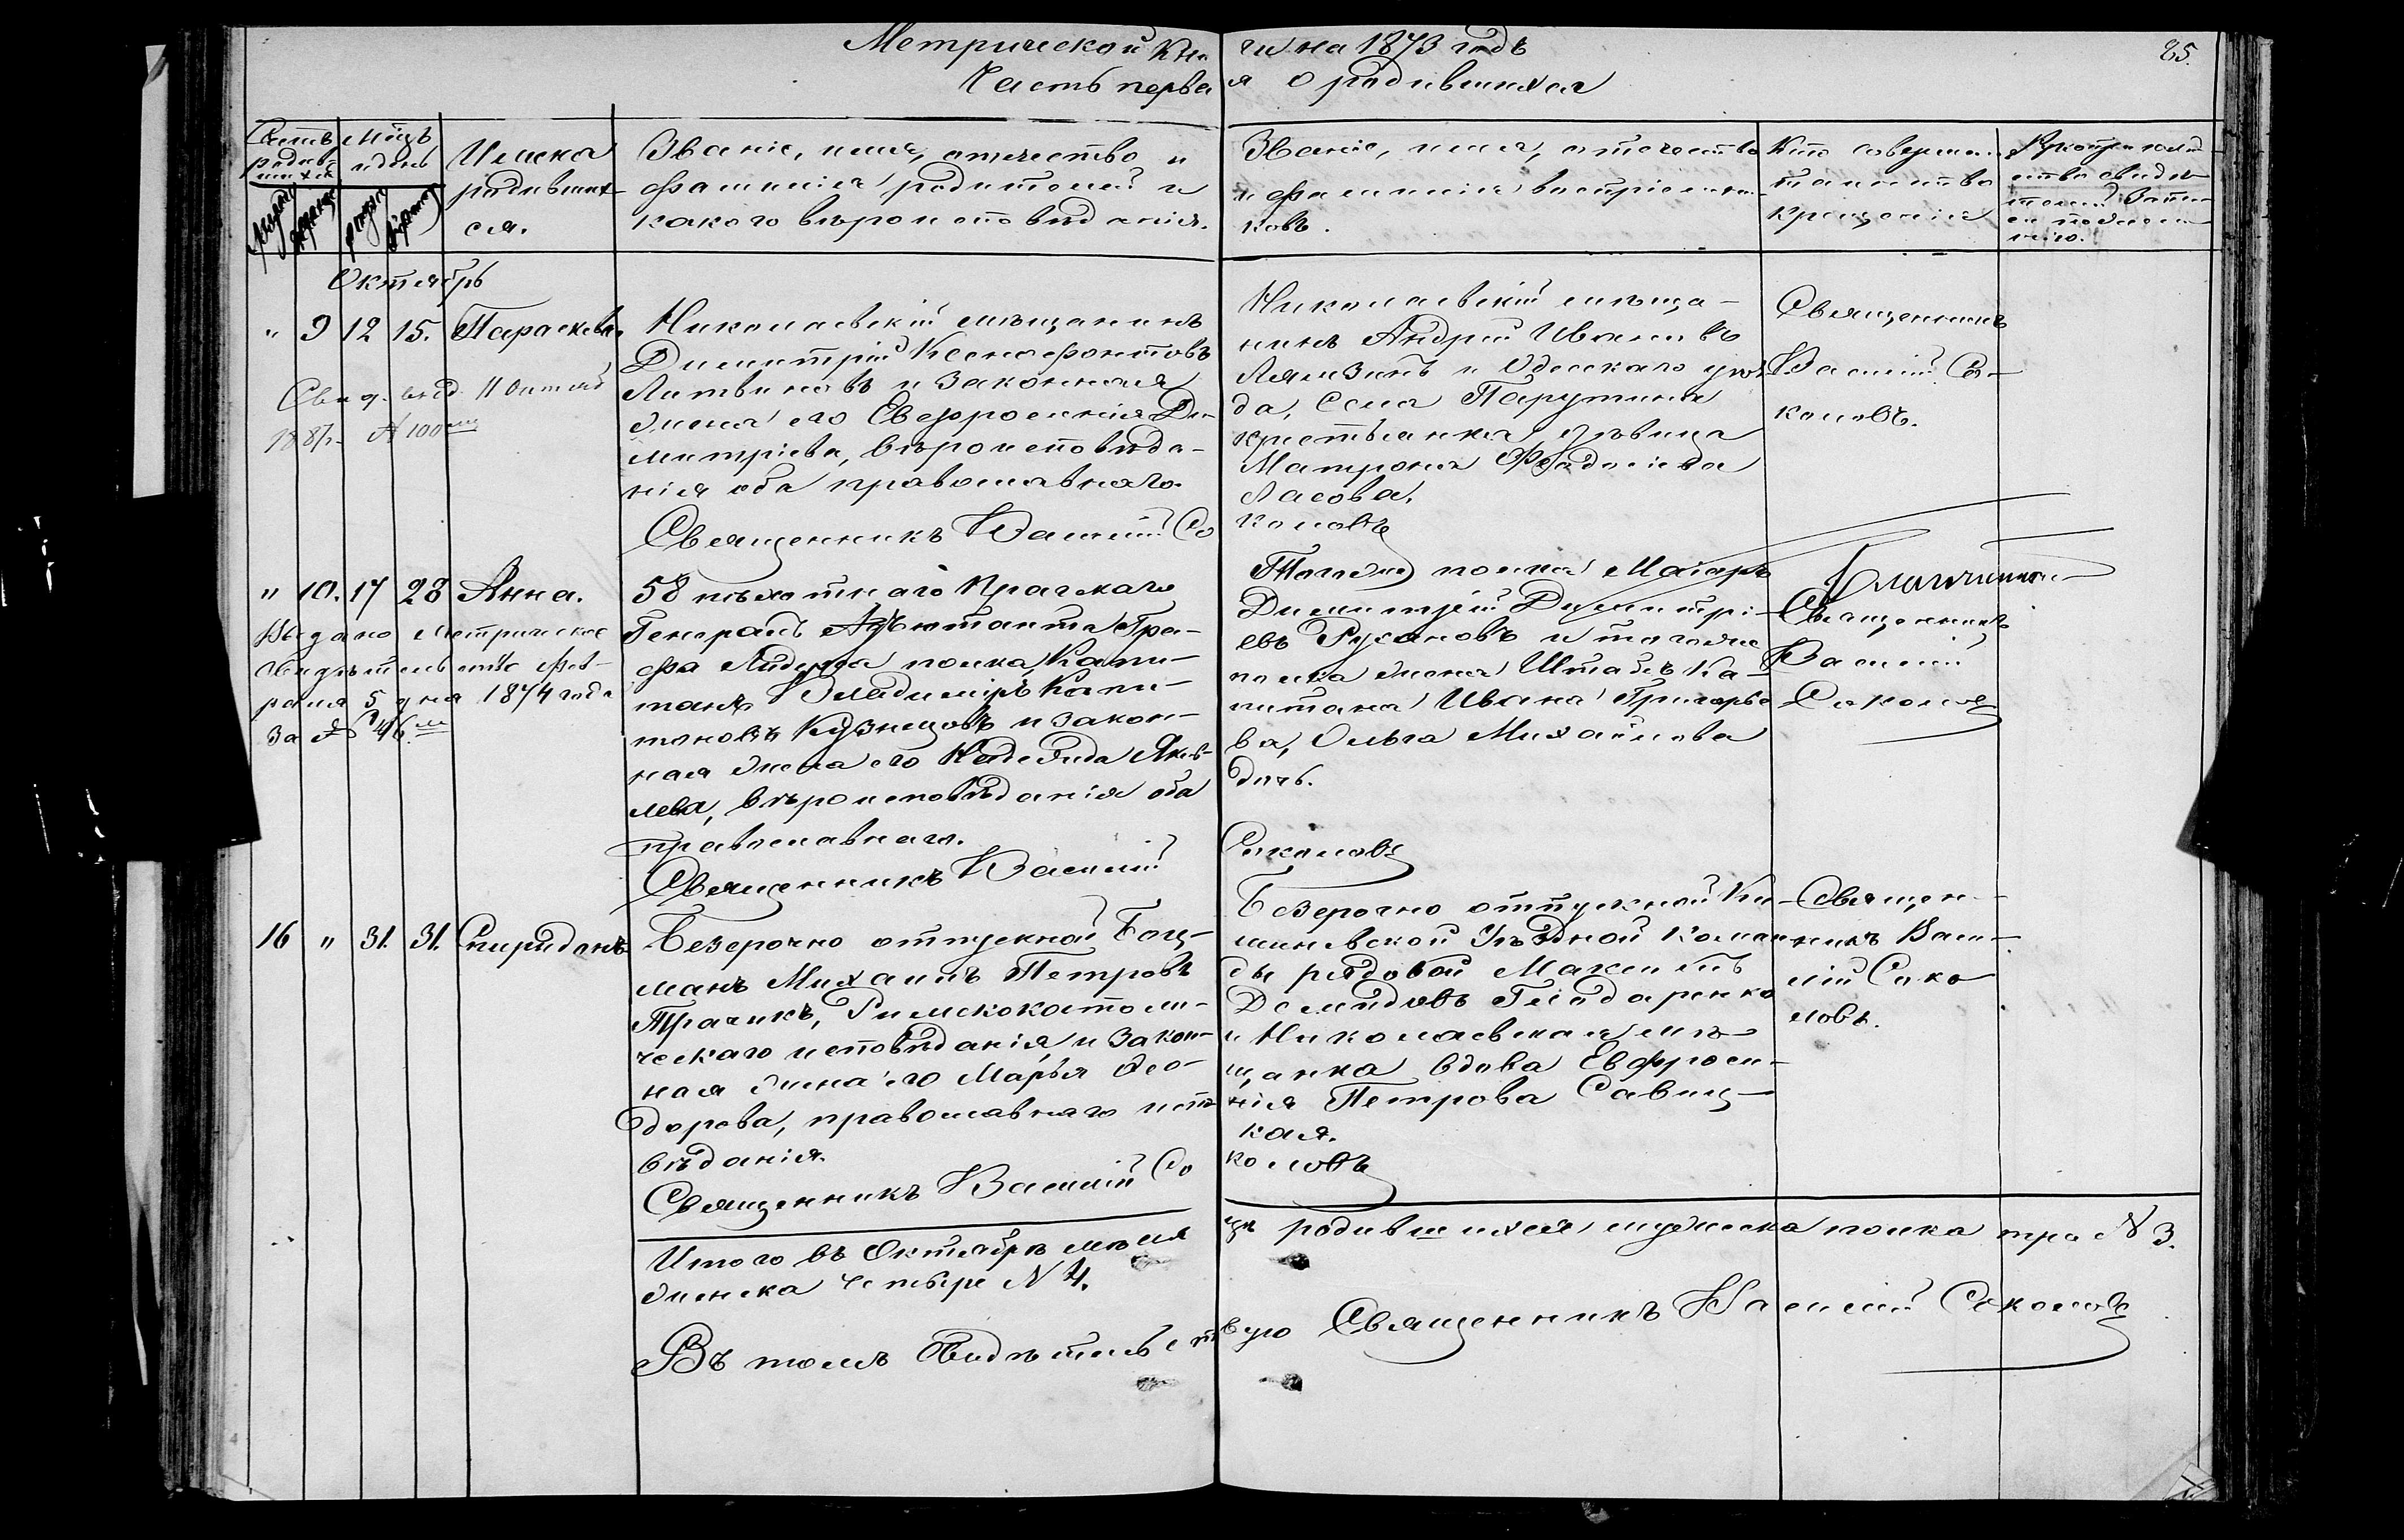 Метрической Книги на 1873 годъ
85.
Часть первая о родившихся
Счетъ родив-шихся
Мѣцъ и день
Имена родивших-ся.
Званіе, имя, отчество и
фамилія родителей и
какого вѣроисповѣданія.
Званіе, имя, отчество
и фамилія воспріемни-
ковъ.
Кто совершалъ
таинство
крещенія
Рукоприклад
ство свидѣ-
телей записи
по желанію.
Октябрь
" 9 12 15. Параскева.
Свид. выд. 11 Октяб
1887. № 100
Николаевскій мѣщанинъ
Димитрій Ксенофонтовъ
Литвиновъ и законная
жена его Евфросинія Ди-
митріева, вѣроисповѣда-
нія оба православнаго.
Священникъ Василій Со
Николаевскій мѣща-
нинъ Андрей Ивановъ
Лямзинъ и Одесскаго уѣз
да, села Парутина
крестьянка, дѣвица
Матрона Фадѣева
Ласова.
коловъ
Священникъ
Василій Со-
коловъ.
" 10. 17 28 Анна.
Выдано метрическое
свидѣтельство Фев-
раля 5 дня 1874 года
за № 46.
58 пѣхотнаго Прагскаго
Генералъ Адъютанта Гра-
фа Лидерса полка, Капи-
танъ Владиміръ Капи-
тоновъ Кузнецовъ и закон-
ная жена его Надежда Яков-
лева, вѣроисповѣданія оба
православнаго.
Священникъ Василій
Тогоже полка Маіоръ
Димитрій Димитрі-
евъ Русановъ и тогоже
полка жена Штабсъ Ка-
питана Ивана Григорье
ва, Ольга Михайлова
дочь.
Соколовъ
Священникъ
Василій
Соколовъ
16 " 31. 31. Спиридонъ
Безсрочно отпускной Боц-
манъ Михаилъ Петровъ
Трачикъ, Римскокатоли-
ческаго исповѣданія, и закон-
ная жена его Марья Ѳео-
дорова, православнаго испо
вѣданія.
Священникъ Василій Со
Безсрочно отпускной Ки-
шиневской Уѣздной Коман
ды рядовой Максимъ
Демидовъ Гайдаренко
и Николаевская мѣ-
щанка вдова Евфроси-
нія Петрова Савиц-
кая.
коловъ
Священ-
никъ Васи-
лій Соко
ловъ.
Итого въ Октябрѣ мѣсяцѣ родившихся мужеска полка три N 3.
женска четыре N 4.
Въ томъ свидѣтельствую Священникъ Василій Соколовъ